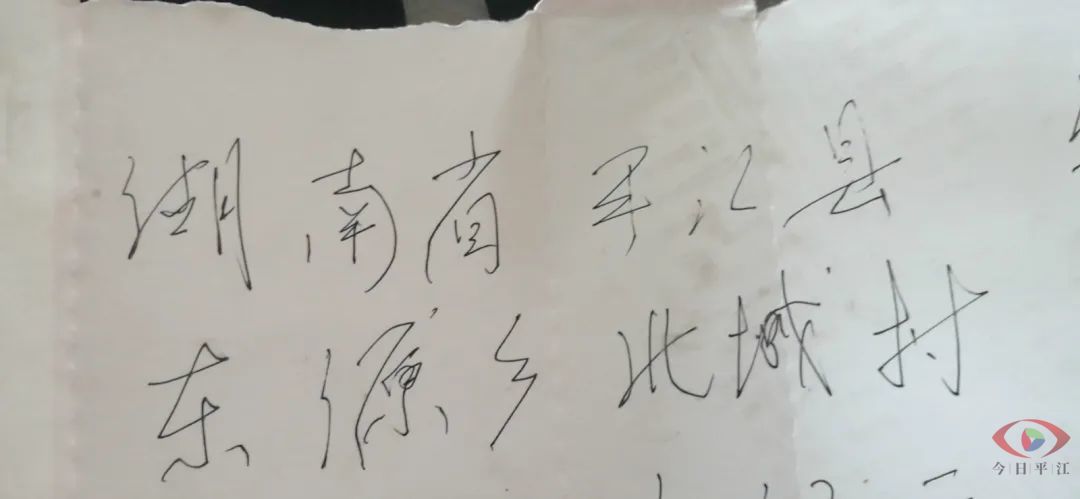 湖南省平江县
东源乡北城村
今日平江